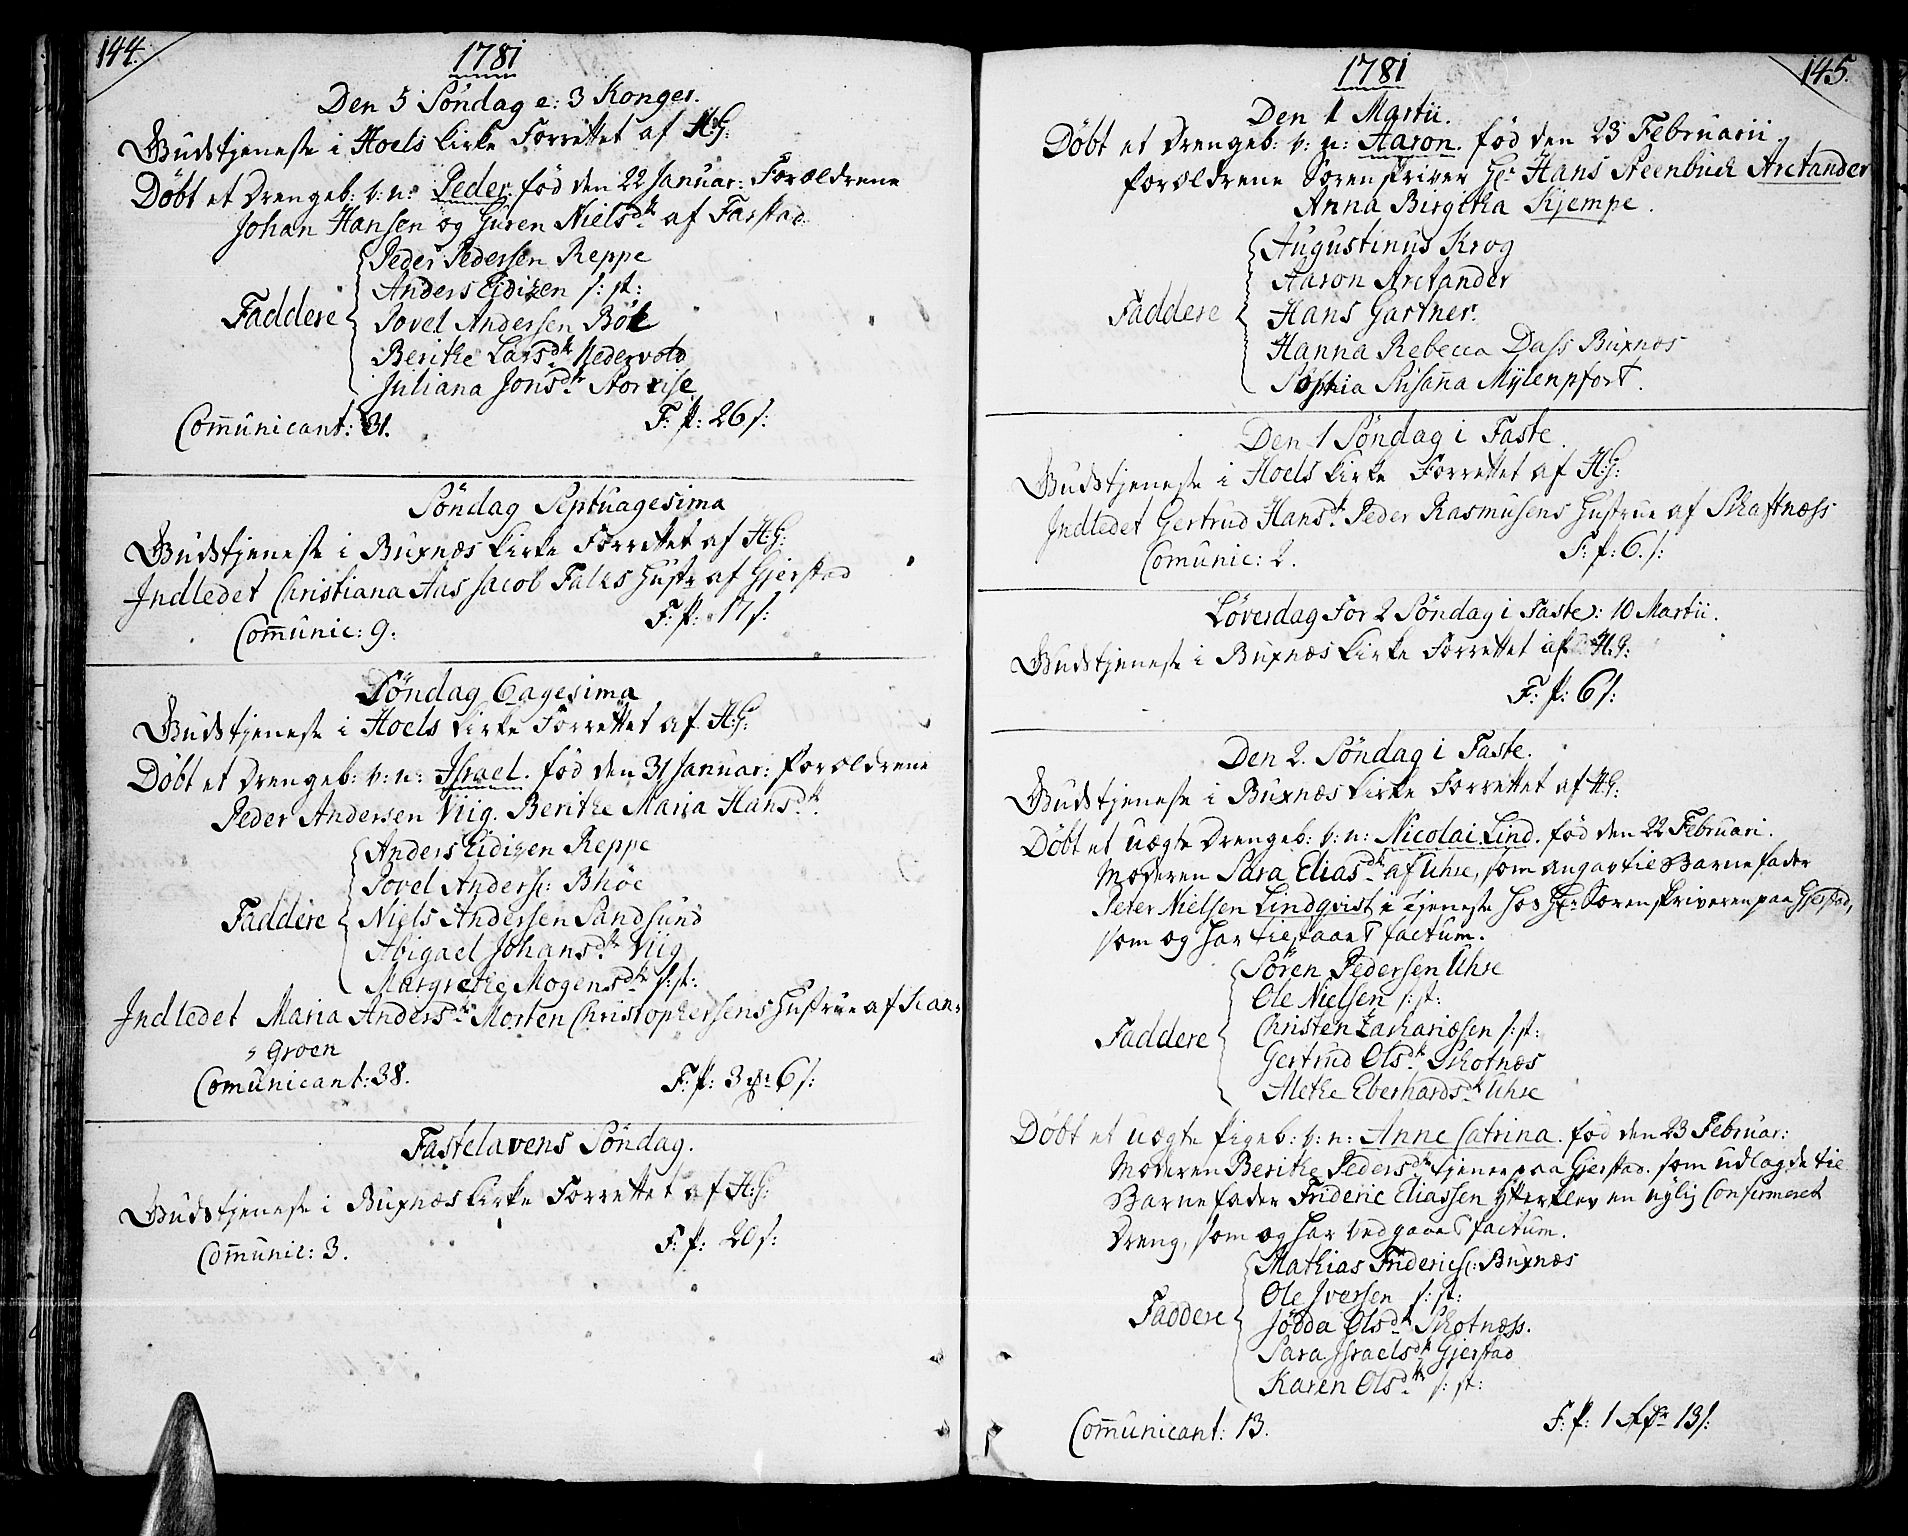 144.
1781
Den 5 Söndag e: 3 Konger.
Gudstjeneste i Hoels Kirke Forrettet af H:G:
Döbt et Drengeb: v: n: Peder. fød den 22 Januar: Forældrene
Johan Hansen og Guren Nielsdtr af Farstad
Peder Pedersen Reppe
Anders Eidizen s: st:
Faddere Povel Andersen Böe
Berithe Larsdtr Nedervold
Juliana Jonsdtr Storeise
Com̄unicant: 31. F: p: 26 s:
Söndag Septuagesima
Gudstjeneste i Buxnæs Kirke Forrettet af H:G:
Indledet Christiana Aas Jacob Falks Hustr af Gjerstad
Com̄unic: 9. F: p: 17 s:
Söndag 6agesima
Gudstjeneste i Hoels Kirke Forrettet af H:G:
Döbt et Drengeb: v: n: Israel. fød den 31 Januar: forældrene
Peder Andersen Viig. Berithe Maria Hansdtr.
Anders Eidizen Reppe
Povel Anders: Bhöe
Faddere Niels Andersen Sandsund
Abigael Johansdtr Viig
Margrethe Mogensdtr s: st:
Indledet Maria Andersdtr Morten Christophersens Hustrue af
Groen
Comunicant: 38. F: p: 3 6 s:
Fastelavens Söndag.
Gudstjeneste i Buxnæs Kirke Forrettet af H:G:
Com̄unic: 3. F: p: 20 s:
145.
1781
Den 1 Martii.
Döbt et Drengeb: v: n: Aaron. fød den 23 Februarii
forældrene Sorenskriver Hr Hans Steenbuch Arctander
Anna Birgitha Kjempe.
Augustinus Krog
Aaron Arctander
Faddere Hans Gartner.
Hanna Rebecca Dass Buxnæs
Sophia Susan̄a Mylenpfort.
Den 1 Söndag i Faste.
Gudstjeneste i Hoels Kirke Forrettet af H:G:
Indledet Gertrud Hansdtr Peder Rasmusens Hustrue af Skaftnæss
Comunic: 2. F: p: 6. s:
Löverdag For 2 Söndag i Faste: 10 Martii.
Gudstjeneste i Buxnæs Kirke Forrettet af H.G:
F: p: 6 s:
Den 2. Söndag i Faste.
Gudstjeneste i Buxnæs Kirke Forrettet af H:G:
Döbt et uægte Drengeb: v: n: Nicolai Lind. fød den 22 Februari.
Moderen Sara Eliasdtr af Uhre, som angav til Barnefader
Peter Nielsen Lindqvist i tjeneste hos Hr Sorenskriveren paa Gjerstad,
som og har tilstaaet factum.
Sören Pedersen Uhre
Ole Nielsen s: st:
Faddere Christen Zachariæsen s: st:
Gertrud Olsdtr Skotnæs
Alethe Eberhardsdtr Uhre
Döbt et uægte Pigeb: v: n: Anne Catrina. fød den 23 Februar:
Moderen Berithe Pedersdtr tjener paa Gjerstad. som udlagde til
Barnefader Frideric Eliassen Ytterklev en nylig Confirmeret
Dreng, som og har vedgaaet factum.
Mathias Frideriks: Buxnæs
Ole Iversen s: st:
Faddere Jödda Olsdtr Skotnæss.
Sara Israelsdtr Gjerstad
Karen Olsdtr s: st:
Com̄unicant: 13. F: p: 1 13 s: